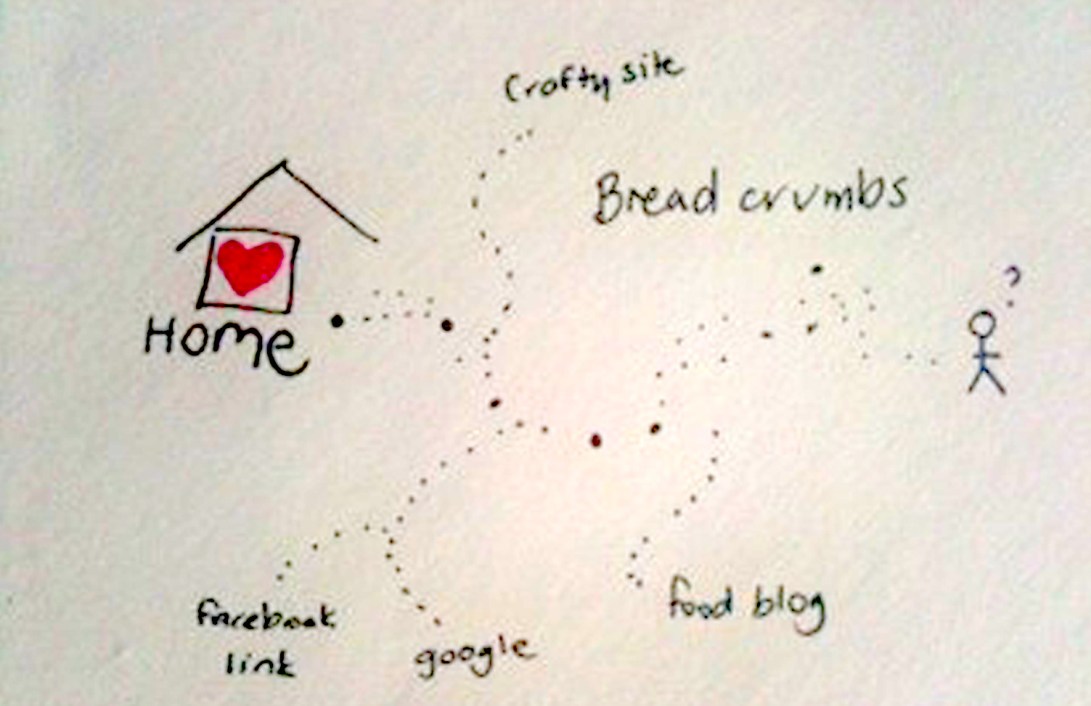 Crafty site
Bread crumbs
?
Home
facebook
link
google
food blog